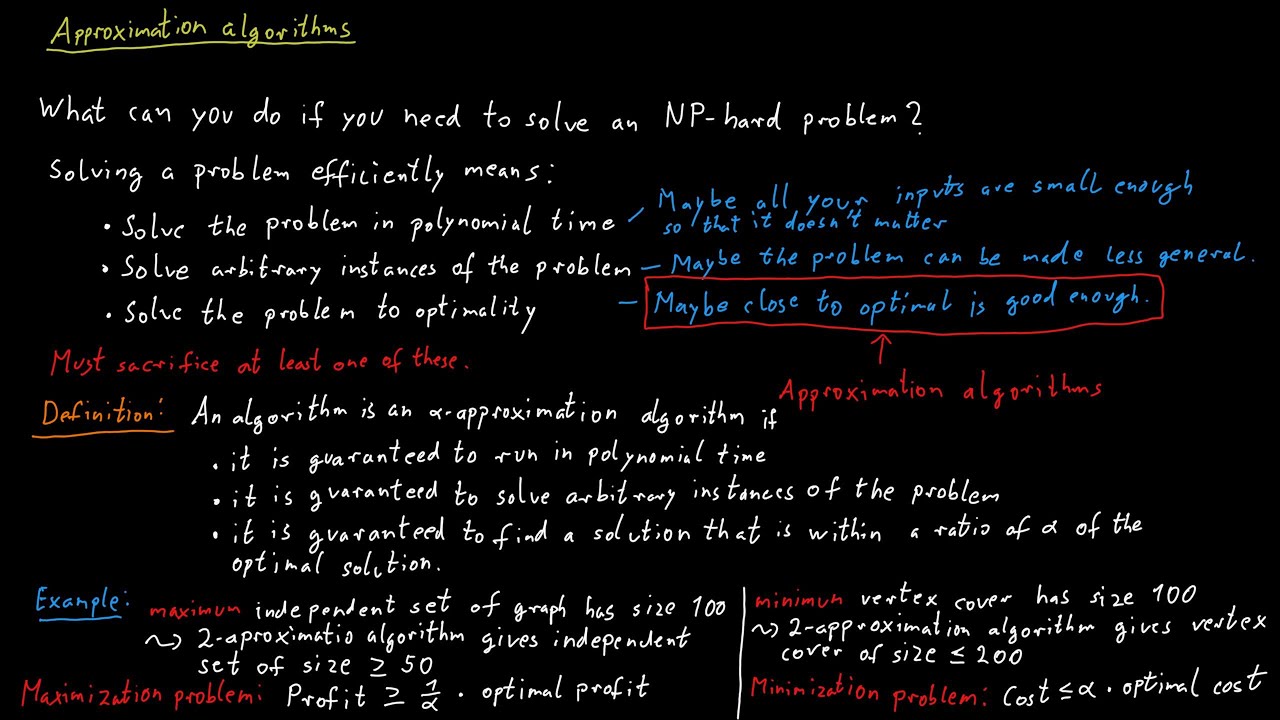 Approximation algorithms
What can you do if you need to solve an NP-hard problem?
Solving a problem efficiently means:
• Solve the problem in polynomial time
Maybe all your inputs are small enough
so that it doesn't matter
• Solve arbitrary instances of the problem — Maybe the problem can be made less general.
• Solve the problem to optimality — Maybe close to optimal is good enough.
Must sacrifice at least one of these.
↑
Approximation algorithms
Definition: An algorithm is an α-approximation algorithm if
• it is guaranteed to run in polynomial time
• it is guaranteed to solve arbitrary instances of the problem
• it is guaranteed to find a solution that is within a ratio of α of the
optimal solution.
Example: maximum independent set of graph has size 100
⤳ 2-aproximatio algorithm gives independent
set of size ≥ 50
Maximization problem: Profit ≥ 1/α · optimal profit
minimum vertex cover has size 100
⤳ 2-approximation algorithm gives vertex
cover of size ≤ 200
Minimization problem: Cost ≤ α · optimal cost